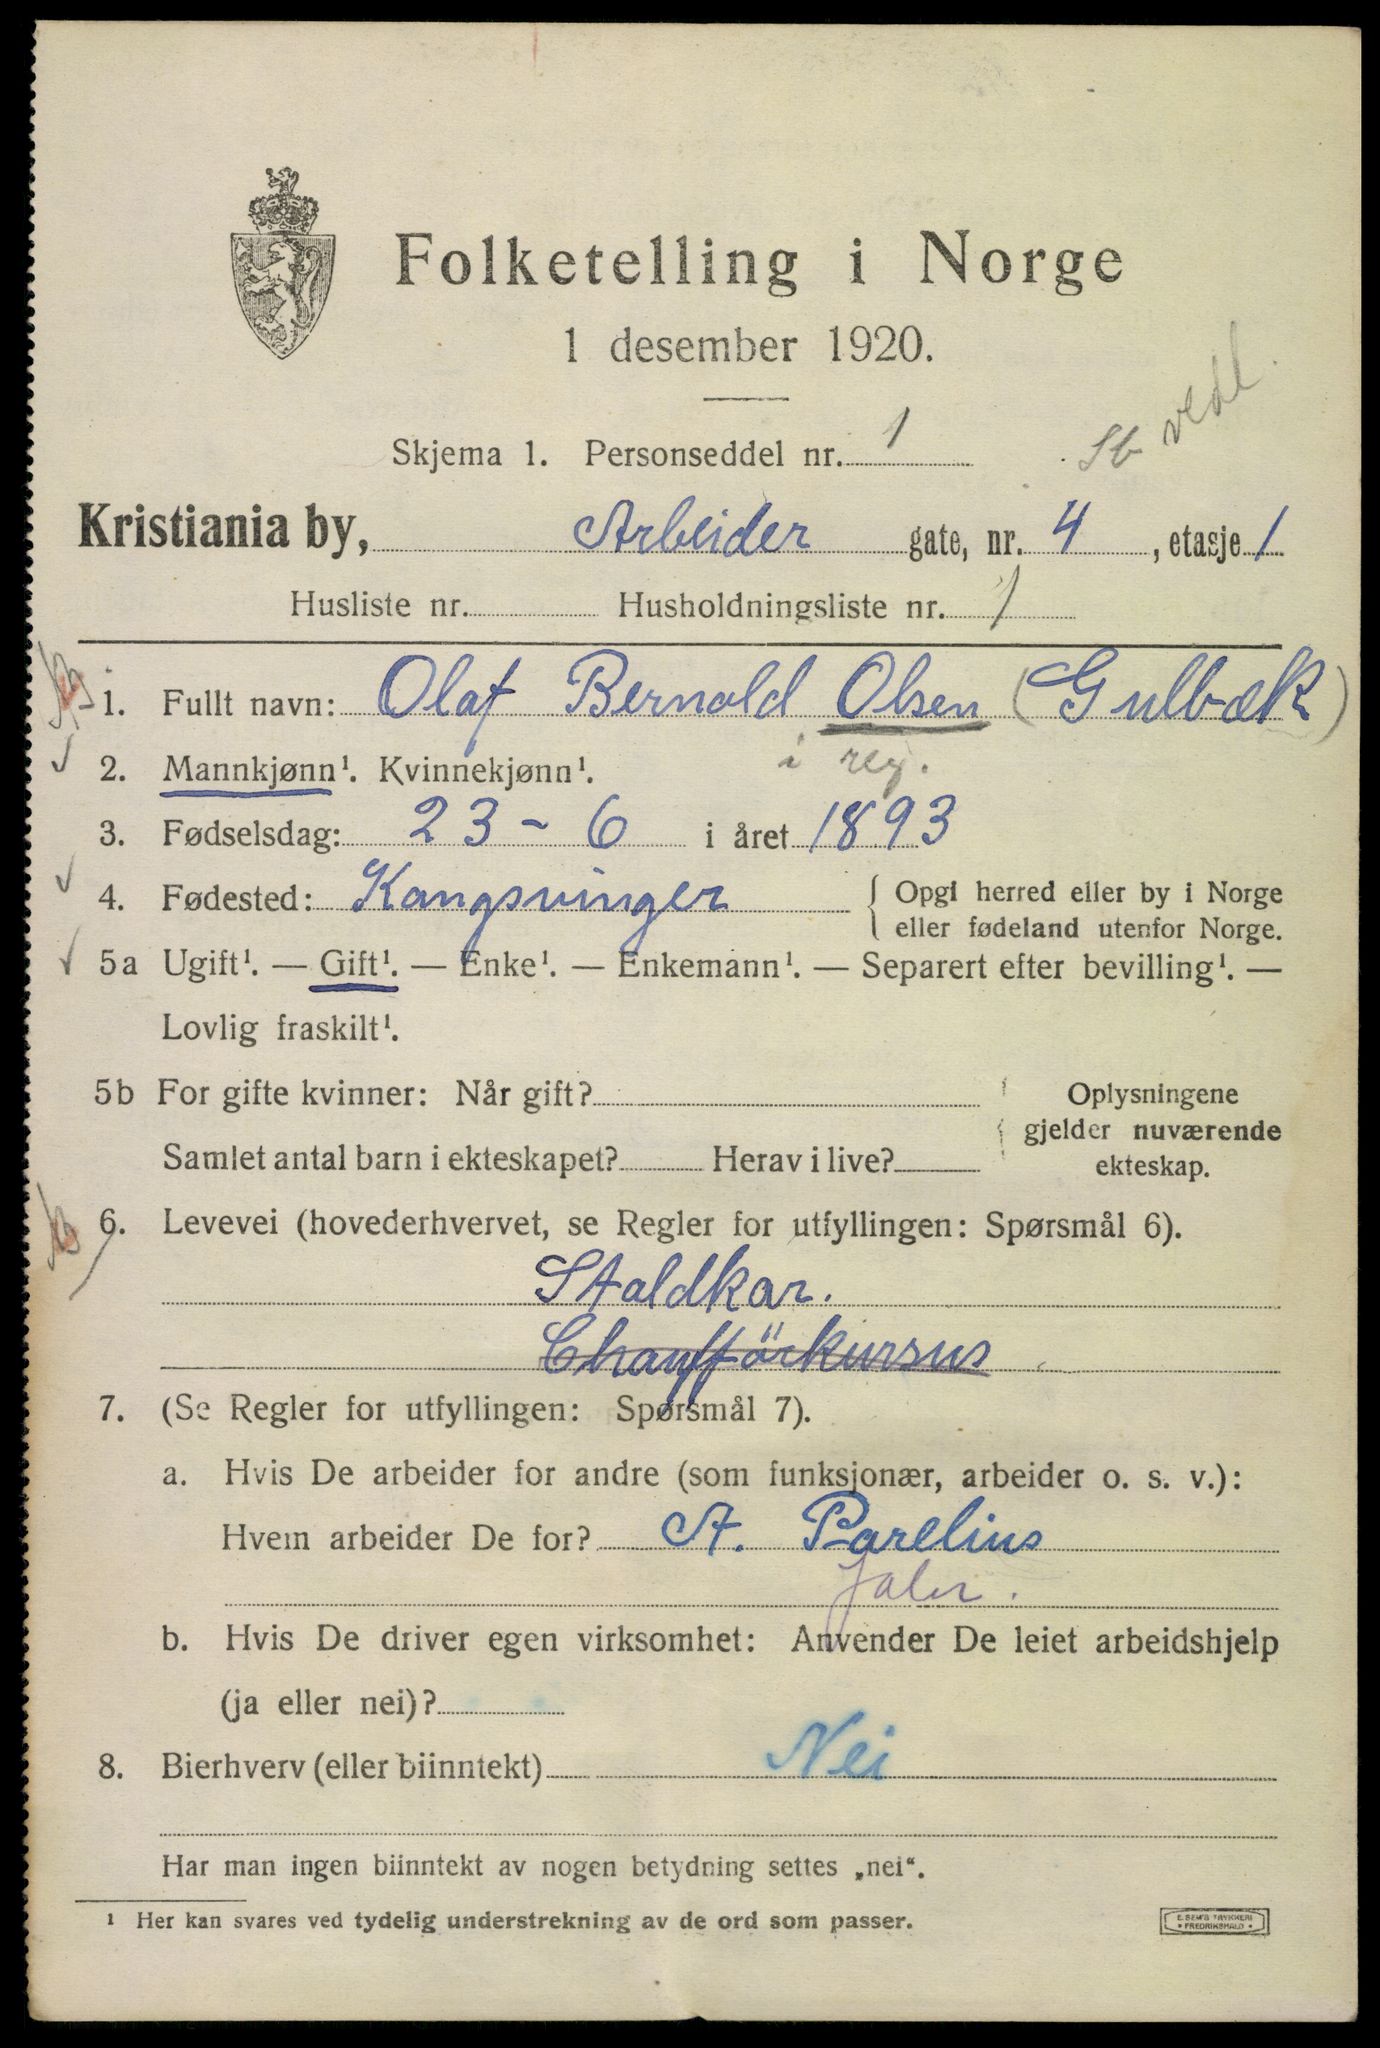 Folketelling i Norge
1 desember 1920.
Skjema 1. Personseddel nr. 1
Sb vedl.
Kristiania by, Arbeider gate, nr. 4, etasje 1
Husliste nr. Husholdningsliste nr. 1
1. Fullt navn: Olaf Bernold Olsen (Gulbæk)
i reg.
2. Mannkjønn¹. Kvinnekjønn¹.
3. Fødselsdag: 23 - 6 i året 1893
4. Fødested: Kangsvinger { Opgi herred eller by i Norge
eller fødeland utenfor Norge.
5a Ugift¹. — Gift¹. — Enke¹. — Enkemann¹. — Separert efter bevilling¹. —
Lovlig fraskilt¹.
5b For gifte kvinner: Når gift?
Samlet antal barn i ekteskapet? Herav i live?
Oplysningene
gjelder nuværende
ekteskap.
6. Levevei (hovederhvervet, se Regler for utfyllingen: Spørsmål 6).
Staldkar.
Chaufförkursus
7. (Se Regler for utfyllingen: Spørsmål 7).
a. Hvis De arbeider for andre (som funksjonær, arbeider o. s. v.):
Hvem arbeider De for? A. Parelius
b. Hvis De driver egen virksomhet: Anvender De leiet arbeidshjelp
(ja eller nei)?
8. Bierhverv (eller biinntekt) Nei
Har man ingen biinntekt av nogen betydning settes „nei“.
¹ Her kan svares ved tydelig understrekning av de ord som passer.
E. SEM'S TRYKKERI
• FREDRIKSHALD •